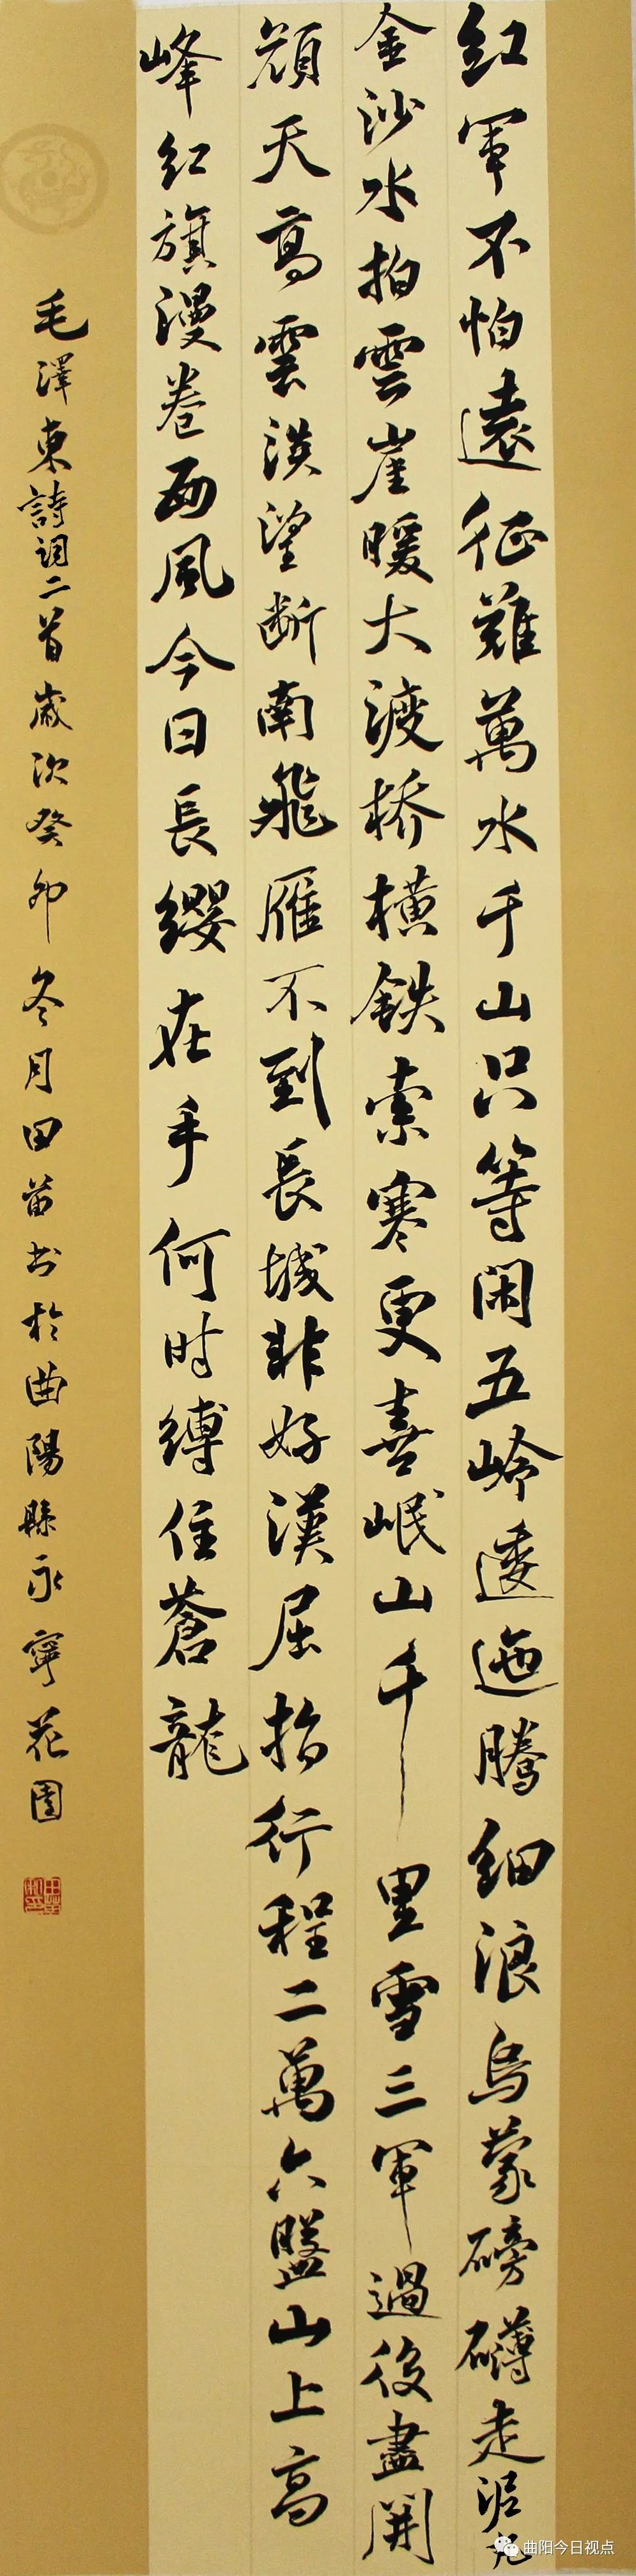 红軍不怕遠征難萬水千山只等闲五岭逶迤腾细浪烏蒙磅礴走泥丸
金沙水拍雲崖暖大渡桥横鉄索寒更喜岷山千里雪三軍過後盡開
颜天高雲淡望断南飛雁不到長城非好漢屈指行程二萬六盤山上高
峰红旗漫卷西風今日長纓在手何时縛住蒼龍
毛澤東詩词二首歲次癸卯冬月田苗书於曲陽縣永寧花園
曲阳今日视点